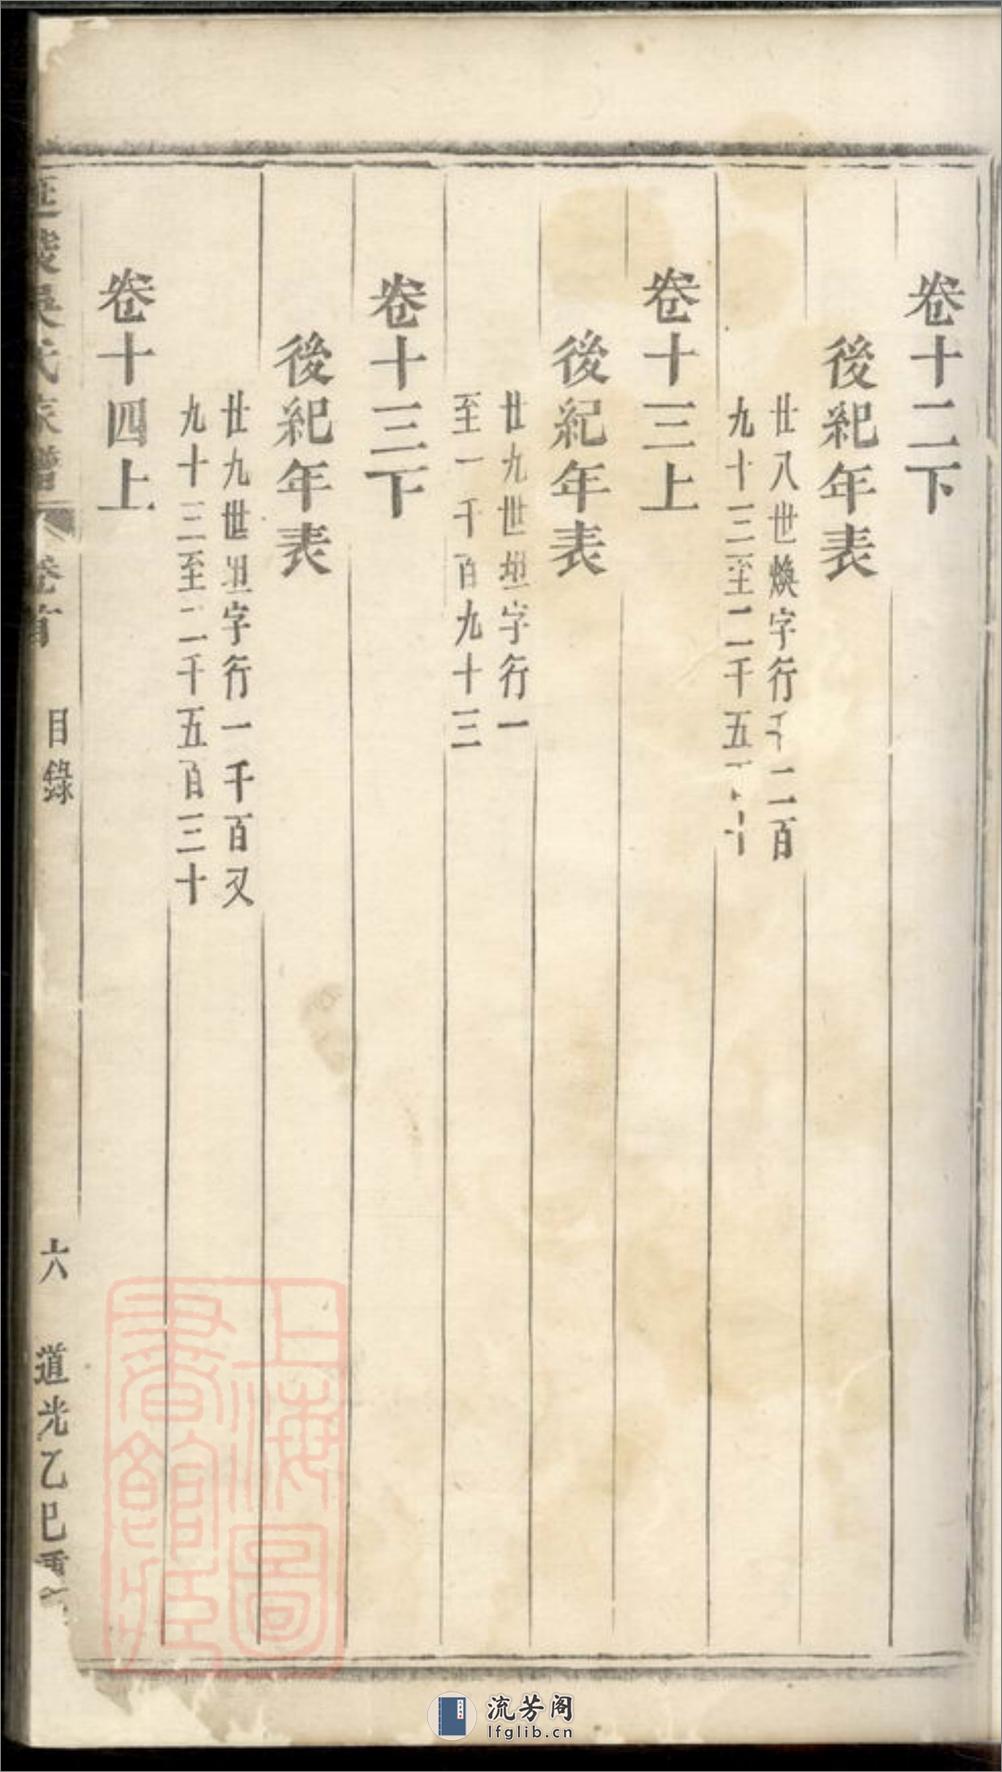 卷十二下
後紀年表
廿八世煥字行千二百
九十三至二千五
卷十三上
後紀年表
廿九世垣字行一
至一千百九十三
卷十三下
後紀年表
廿九世垣字行一千百又
九十三至二千五百三十
卷十四上
吳氏宗譜 卷首 目錄 六 道光乙巳重
上海圖書館藏
流芳阁
lfglib.cn